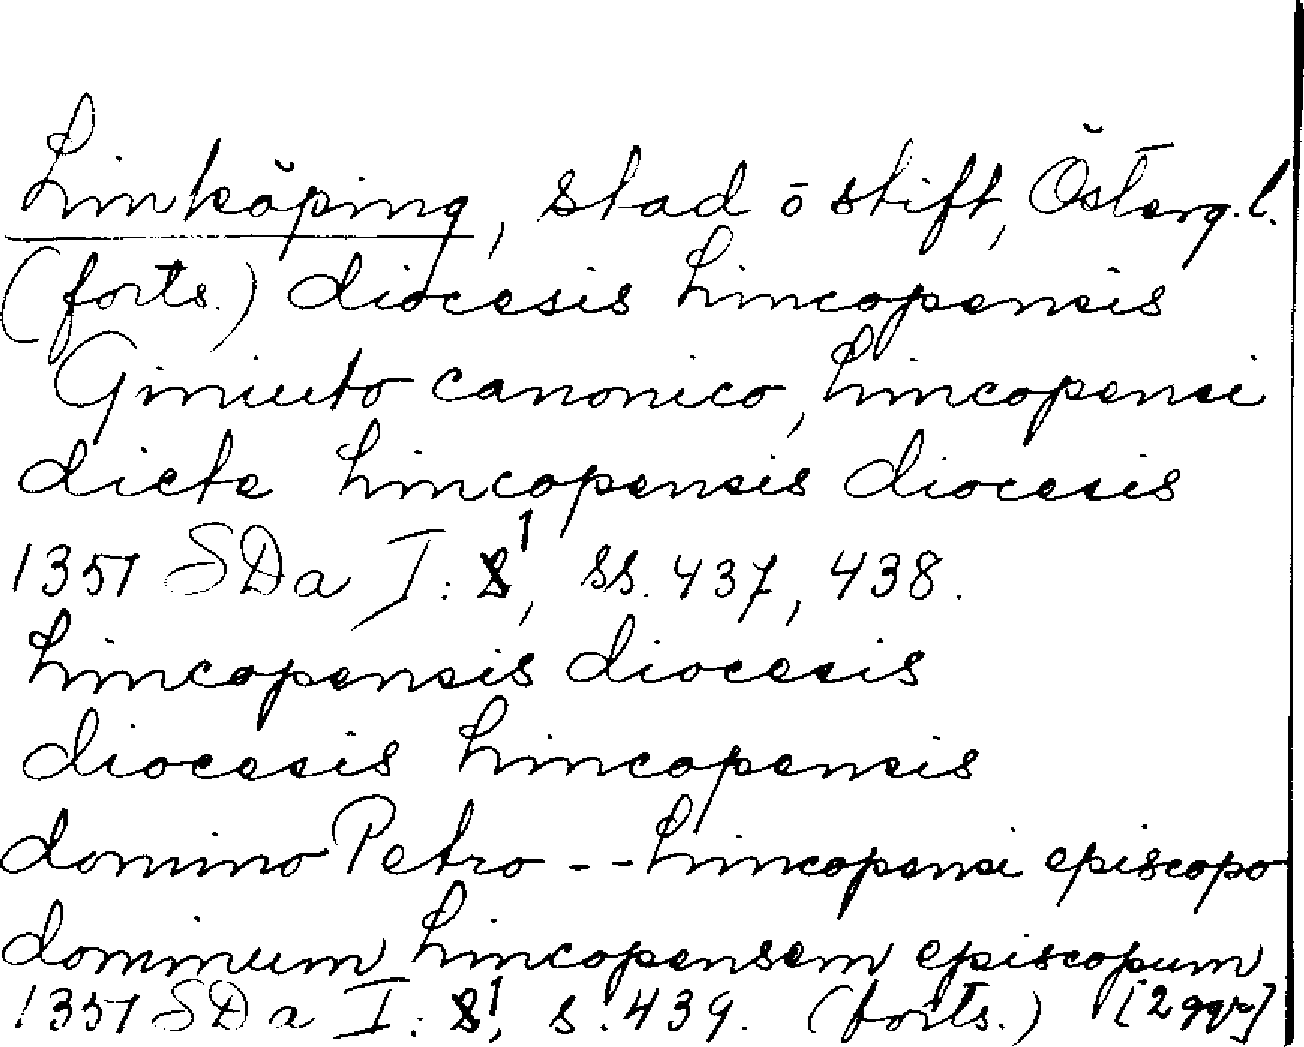 Linköping, stad ō stift, Österg.l.
(forts.) diocesis Lincopensis
Giniuto canonico, Lincopensi
dicte Lincopensis diocesis
1357 SDa I: 8¹, ss. 437, 438.
Lincopensis diocesis
diocesis Lincopensis
domino Petro -- Lincopensi episcopo
dominum Lincopensem episcopum
1357 SDa I: 8¹, s. 439. (forts.) [2 ggr]